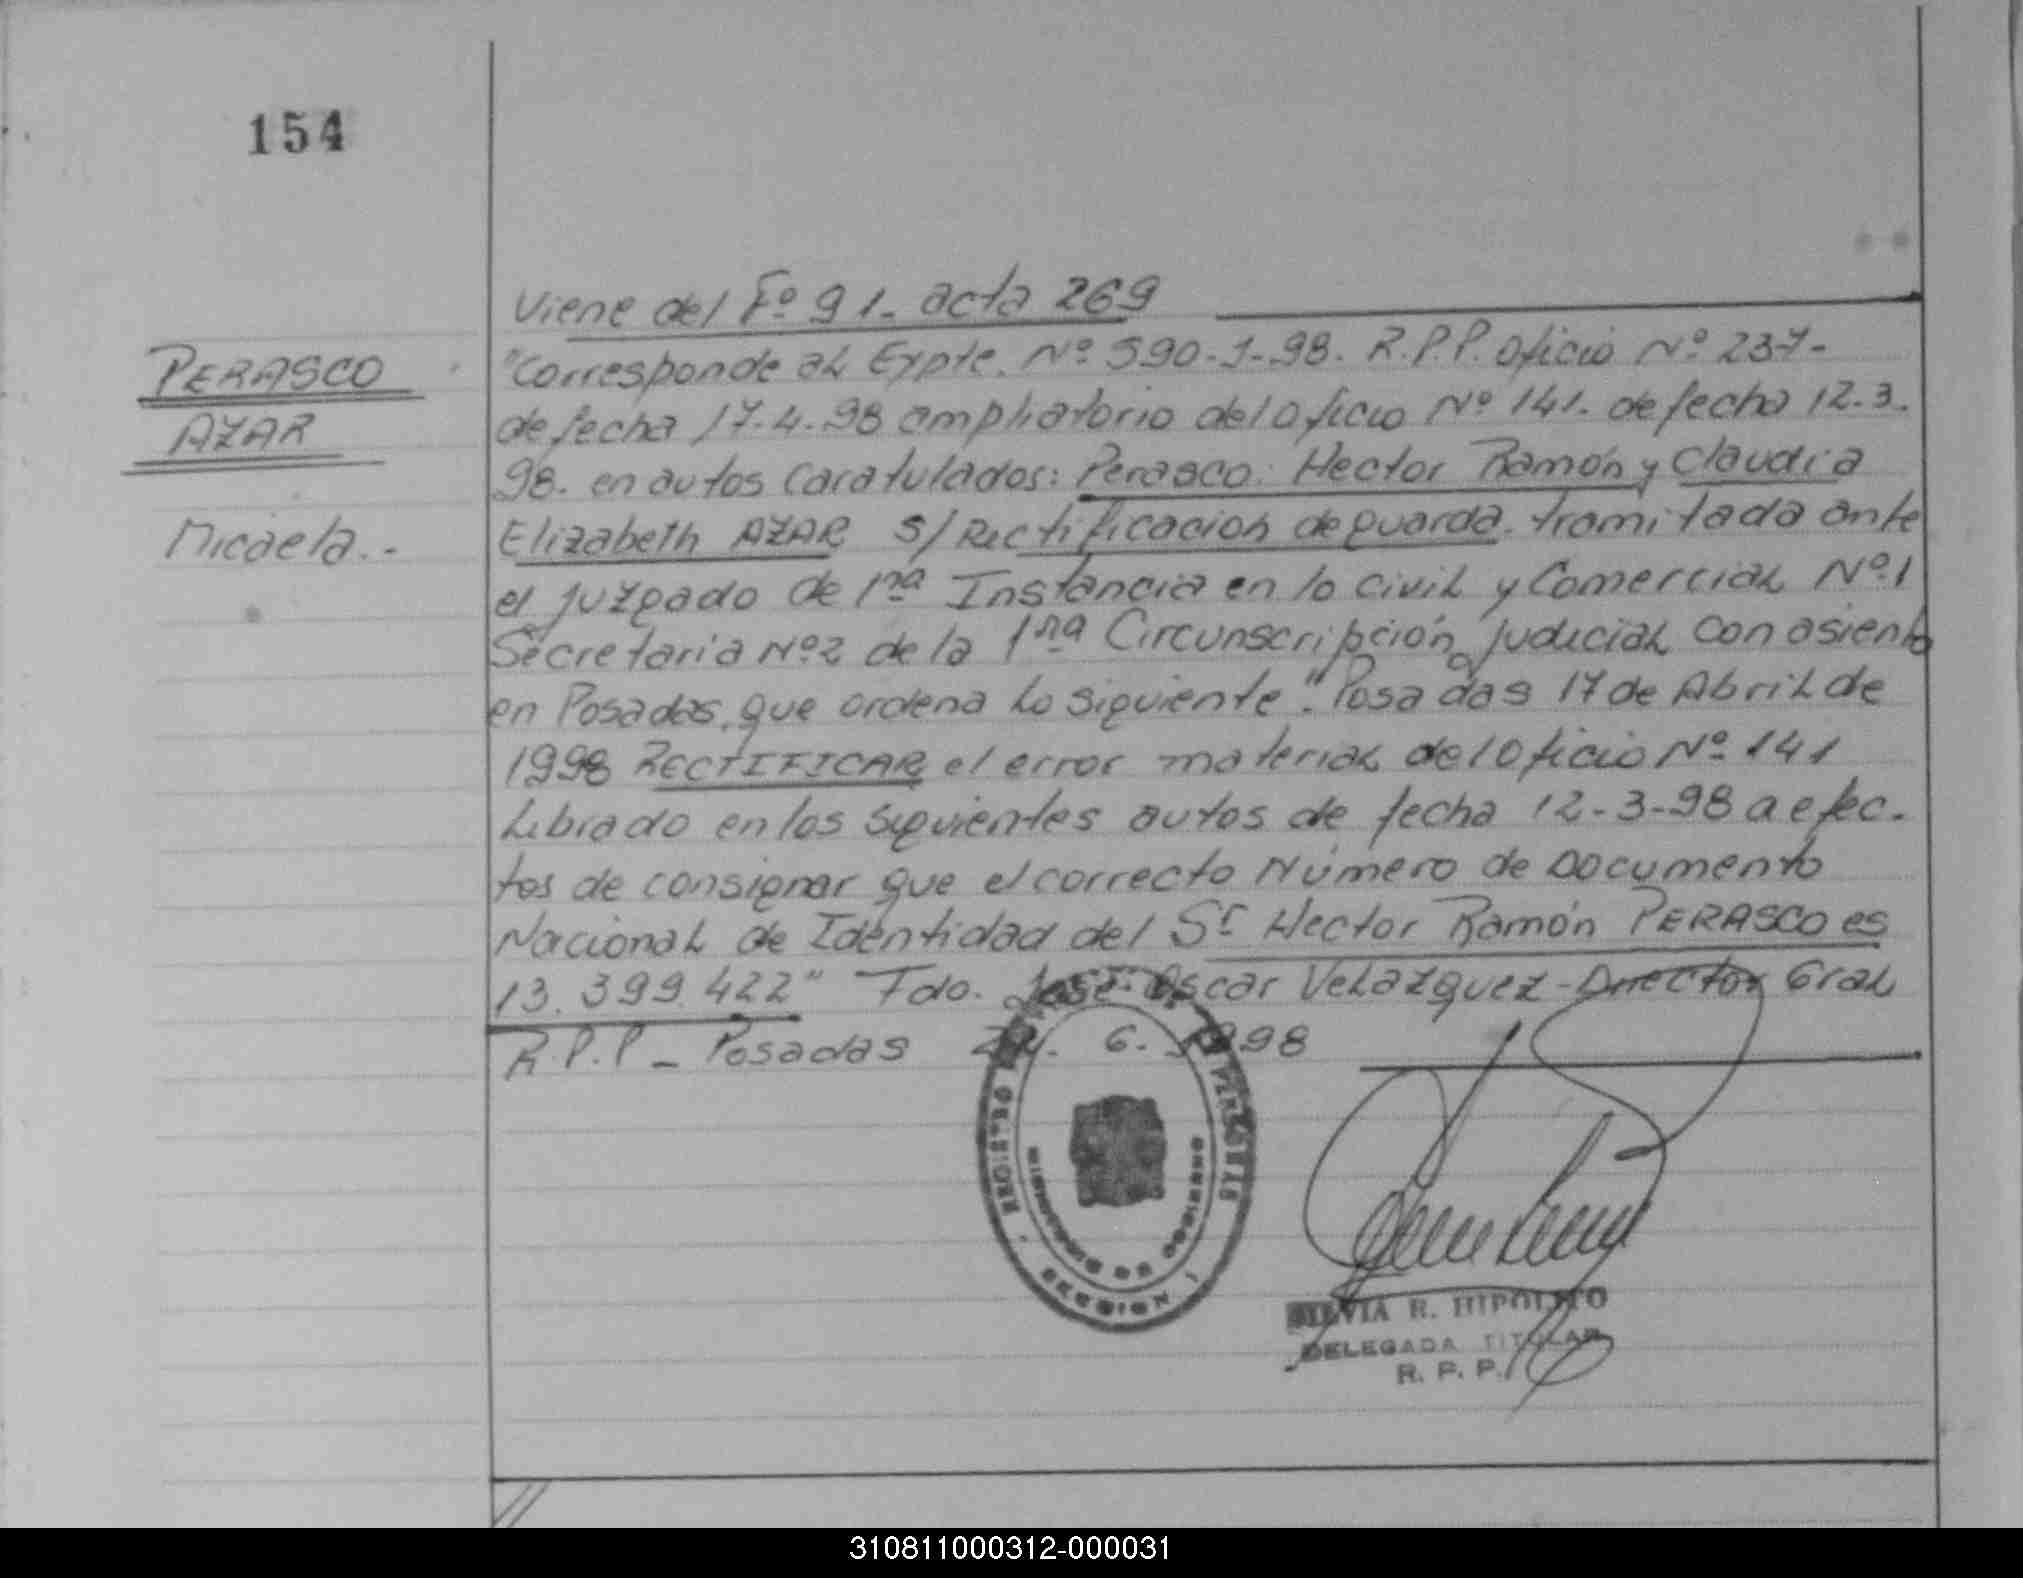 154
Viene del Fº 91- acta 269
PERASCO
AZAR
Micaela.-
"Corresponde al Expte. Nº 590-J-98. R.P.P. oficio Nº 237-
de fecha 17.4.98 ampliatorio del oficio Nº 141. de fecha 12.3.
98. en autos caratulados: Perasco. Hector Ramón y Claudia
Elizabeth AZAR S/Rectificacion de guarda. tramitada ante
el juzgado de 1ra Instancia en lo Civil y Comercial Nº1
Secretaria Nº2 de la 1ra Circunscripción judicial con asiento
en Posadas, que ordena lo siguiente". Posadas 17 de Abril de
1998 RECTIFICAR el error material del Oficio Nº 141
Librado en los siguientes autos de fecha 12-3-98 a efec-
tos de consignar que el correcto Número de Documento
Nacional de Identidad del Sr Hector Ramón PERASCO es
13.399.422" Fdo. José Oscar Velazquez-Director Gral
R.P.P - Posadas 6. 1998
REGISTRO PERSONAS
MINISTERIO DE GOBIERNO
MISIONES
SILVIA R. HIPOLITO
DELEGADA TITULAR
R. P. P.
310811000312-000031